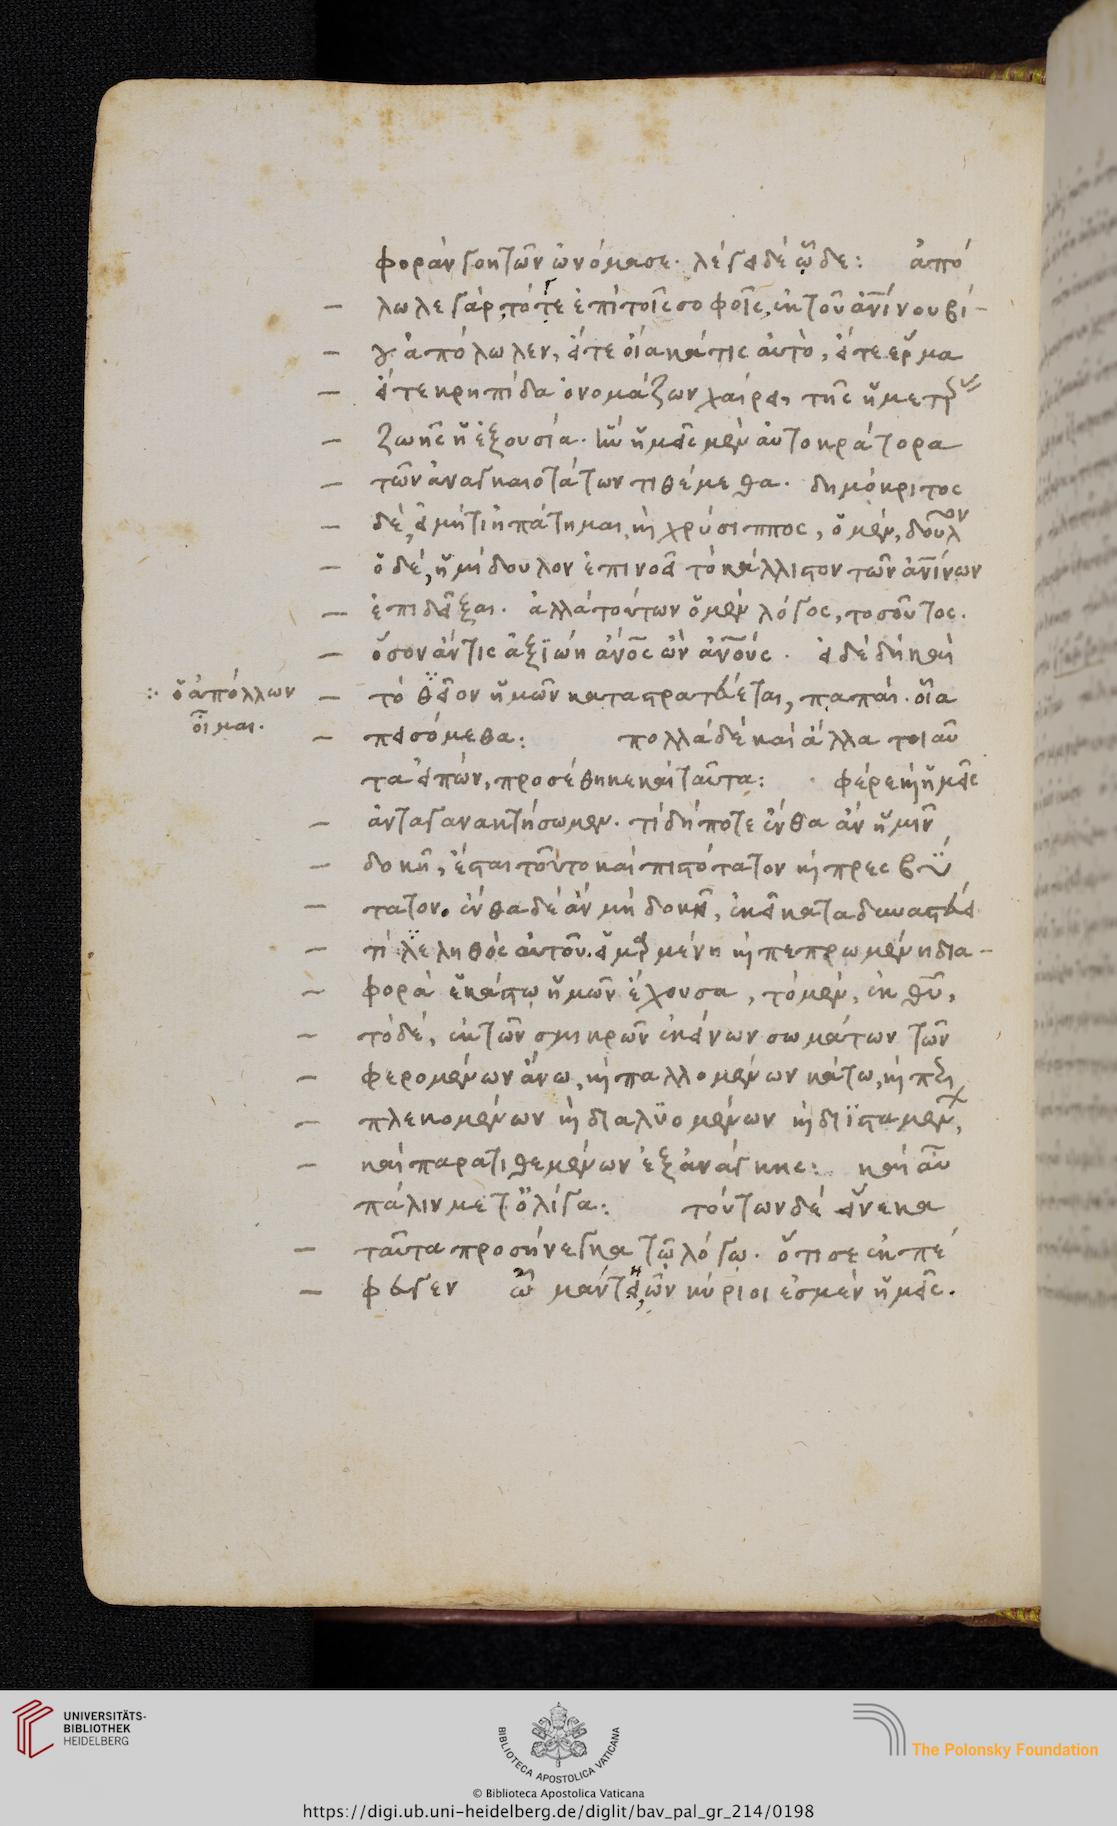 φορὰν γοητῶν ὠνόμασε. λέγει δὲ ὧδε: ἀπό
λωλε γάρ, τό γε ἐπὶ τοῖς σοφοῖς, ἐκ τοῦ ἀνίνου βί-
ου ἀπόλωλεν, εἴτε οἴακά τις αὐτὸ, εἴτε ἕρμα
εἴτε κρηπίδα ὀνομάζων χαίρει, τῆς ἡμετέρας
ζωῆς ἡ ἐξουσία. ἣν ἡμεῖς μὲν αὐτοκράτορα
τῶν ἀναγκαιοτάτων τιθέμεθα. δημόκριτος
δὲ, εἰ μή τι ἠπάτημαι, καὶ χρύσιππος, ὁ μὲν, δοῦλον
ὁ δὲ, ἡμίδουλον ἐπινοεῖ τὸ κάλλιστον τῶν ἀνίνων
ἐπιδεῖξαι. ἀλλὰ τούτων ὁ μὲν λόγος, τοσοῦτος.
ὅσον ἄν τις ἀξιώη ἄνος ὢν ἀνους. εἰ δὲ δὴ καὶ
:· ὁ ἀπόλλων
οἶμαι.
τὸ θεῖον ἡμῶν καταστρατεύεται, παπαὶ. οἷα
πεισόμεθα: πολλὰ δὲ καὶ ἄλλα τοιαῦ
τα εἰπών, προσέθηκε καὶ ταῦτα: φέρε καὶ ἡμεῖς
ἀνταγανακτήσωμεν. τί δή ποτε ἔνθα ἂν ἡμῖν
δοκῆ, ἔσται τοῦτο καὶ πιστότατον καὶ πρεσβύ
τατον. ἔνθα δὲ ἂν μὴ δοκῆ, ἐκεῖ καταδυναστεύει
τὶ λεληθὸς αὐτοῦ. εἱμαρμένη καὶ πεπρωμένη δια-
φορὰ ἑκάστῳ ἡμῶν ἔχουσα, τὸ μὲν, ἐκ θυ,
τὸ δὲ, ἐκ τῶν σμικρῶν ἐκείνων σωμάτων τῶν
φερομένων ἄνω, καὶ παλλομένων κάτω, καὶ περι
πλεκομένων καὶ διαλυομένων καὶ διϊσταμένων,
καὶ παρατιθεμένων ἐξ ἀνάγκης: καὶ αὖ
πάλιν μετ' ὀλίγα: τούτων δὲ εἵνεκα
ταῦτα προσήνεγκα τῷ λόγῳ. ὅτι σε ἐκπέ
φευγεν ὦ μαντεῖε, ὧν κύριοι ἐσμὲν ἡμεῖς.
UNIVERSITÄTS-
BIBLIOTHEK
HEIDELBERG
BIBLIOTECA APOSTOLICA VATICANA
The Polonsky Foundation
© Biblioteca Apostolica Vaticana
https://digi.ub.uni-heidelberg.de/diglit/bav_pal_gr_214/0198